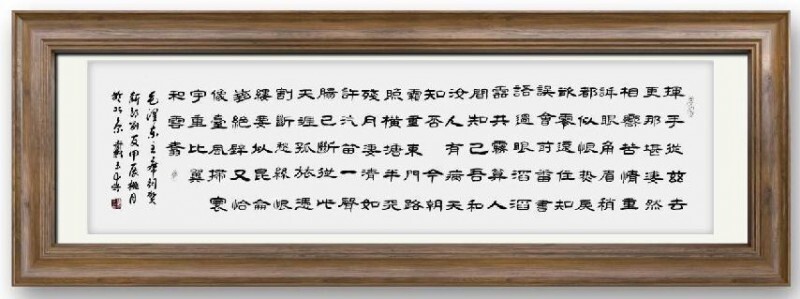 揮手從兹去
更那堪淒然
相向苦情重
訴眼角眉梢
都似恨熱淚
欲零還住知
誤會前番書
語過眼滔滔
雲共霧算人
間知己吾和
汝人有病天
知否 今朝
霜重東門路
照橫塘半天
殘月淒清如
許汽笛一聲
腸已斷從此
天涯孤旅憑
割斷愁絲恨
縷要似昆侖
崩絕壁又恰
像臺風掃寰
宇重比翼
和雲翥
毛澤東主席詞賀
新郎别友甲辰桃月
於北京